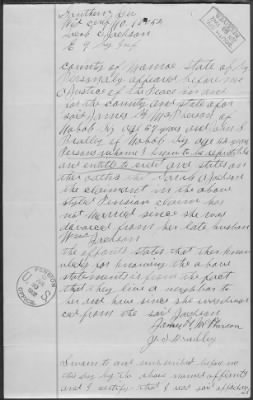 Southern Div
Wid Orig No.
Sarah C Jackson
C 9 Ky Inf
County of Monroe State of Ky
Personally appeared before me
a Justice of the Peace in and
for the county and state afore
said James G McPherson of
Ky age 67 years and John S
Bradley of Ky age 64 years
Persons whome I known to be reputable
and entitle to credit and states on
ther oathes that Sarah C Jackson
the claimant in the above
styled Pension claim has
not Married since she was
divorced from her late husban
Wm Jackson
the affiants states that ther knowe
ledg for knowing the above
statements is from the fact
that they live a neighbor to
her and have since she was divor
ced from the said Jackson
James G McPherson
J S Bradley
Sworn to and subscribed before me
this day by the above named affiants
and I certify that I not said affidavit
PENSION
U S